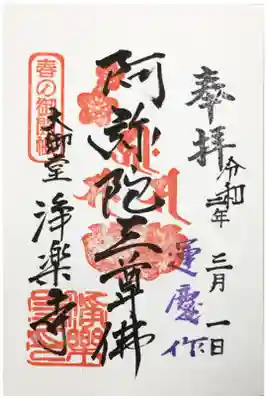 奉拝
令和三年三月一日
運慶作
阿弥陀三尊佛
春の御開帳
大御堂
浄楽寺